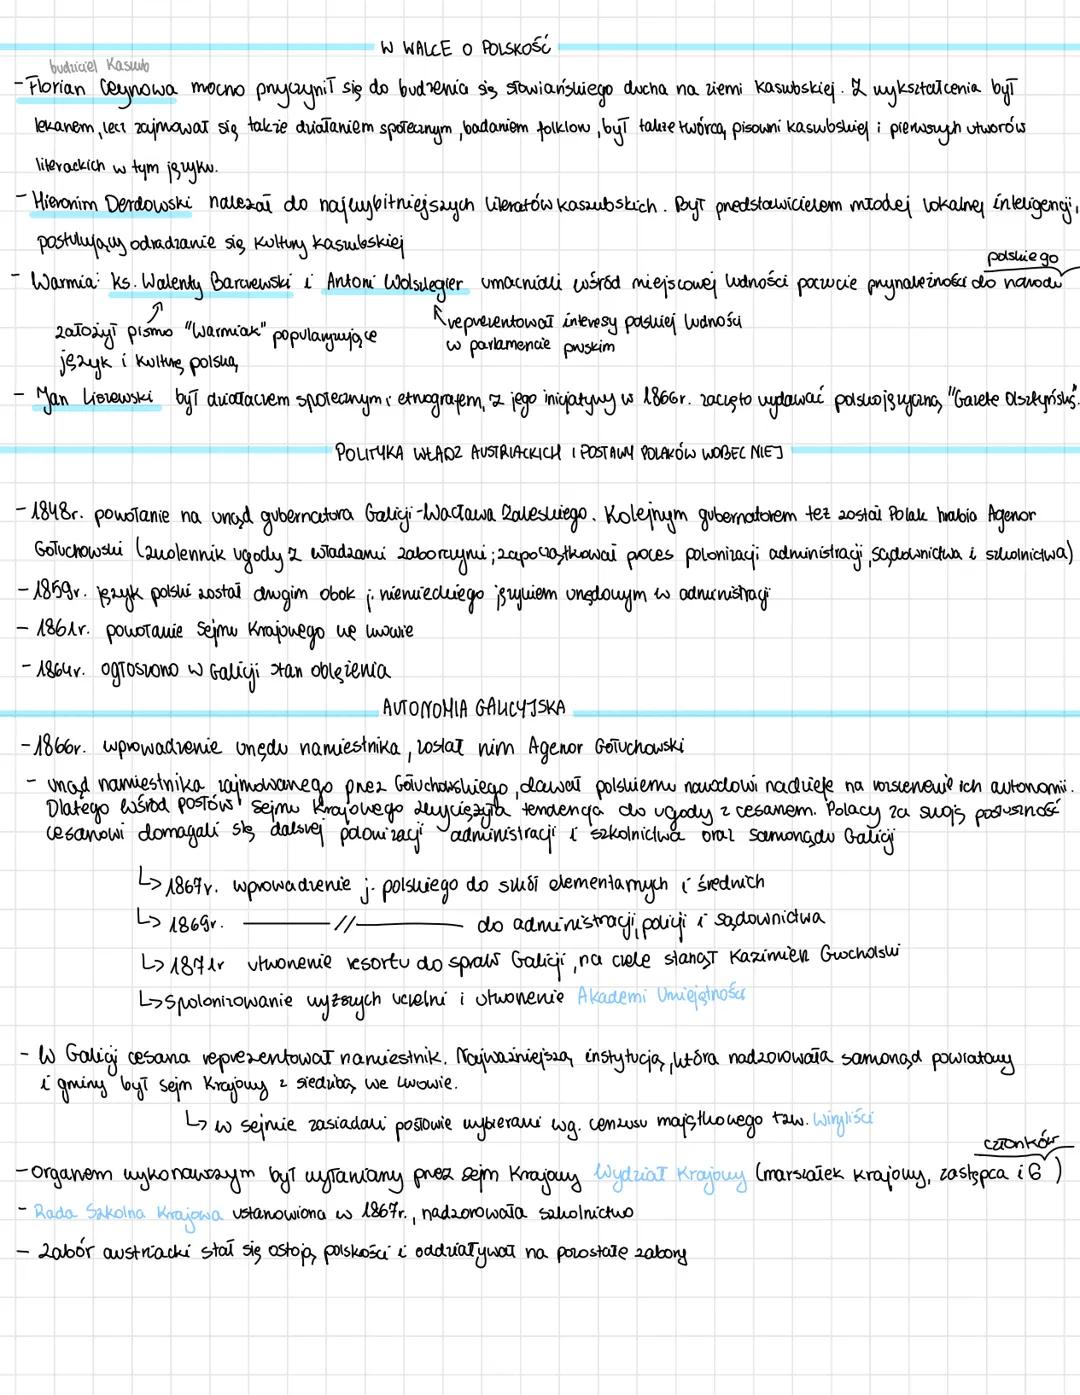 W WALCE O POLSKOŚĆ
budziciel Kaszub
- Florian Ceynowa mocno przyczynił się do budzenia się słowiańskiego ducha na ziemi kaszubskiej. Z wykształcenia był
lekarzem, lecz zajmował się także działaniem społecznym, badaniem folkloru, był także twórcą pisowni kaszubskiej i pierwszych utworów
literackich w tym języku.
- Hieronim Derdowski należał do najwybitniejszych literatów kaszubskich. Był przedstawicielem młodej lokalnej inteligencji,
postulującej odradzanie się kultury kaszubskiej
polskiego
- Warmia: Ks. Walenty Barczewski i Antoni Wolszlegier umacniali wśród miejscowej ludności poczucie przynależności do narodu
założył pismo "Warmiak" popularyzujące
język i kulturę polską
reprezentował interesy polskiej ludności
w parlamencie pruskim
- Jan Liszewski był działaczem społecznym i etnografem, z jego inicjatywy w 1866r. zaczęto wydawać polskojęzyczną "Gazetę Olsztyńską".
POLITYKA WŁADZ AUSTRIACKICH I POSTAWY POLAKÓW WOBEC NIEJ
- 1848r. powołanie na urząd gubernatora Galicji - Wacława Zaleskiego. Kolejnym gubernatorem też został Polak hrabia Agenor
Gołuchowski (zwolennik ugody z władzami zaborczymi; zapoczątkował proces polonizacji administracji, sądownictwa i szkolnictwa)
- 1859r. język polski został drugim obok j. niemieckiego językiem urzędowym w administracji
- 1861r. powołanie Sejmu Krajowego we Lwowie
- 1864r. ogłoszono w Galicji stan oblężenia
AUTONOMIA GALICYJSKA
- 1866r. wprowadzenie urzędu namiestnika, został nim Agenor Gołuchowski
- urząd namiestnika zajmowanego przez Gołuchowskiego, dawał polskiemu narodowi nadzieję na rozszerzenie ich autonomii.
Dlatego wśród posłów Sejmu Krajowego zwyciężyła tendencja do ugody z cesarzem. Polacy za swoją posłuszność
cesarzowi domagali się dalszej polonizacji administracji i szkolnictwa oraz samorządu Galicji
↳ 1867r. wprowadzenie j. polskiego do szkół elementarnych i średnich
↳ 1869r. ——//—— do administracji, policji i sądownictwa
↳ 1871r utworzenie resortu do spraw Galicji, na czele stanął Kazimierz Grocholski
↳ spolonizowanie wyższych uczelni i utworzenie Akademi Umiejętności
- W Galicji cesarza reprezentował namiestnik. Najważniejszą instytucją, która nadzorowała samorząd powiatowy
i gminy był sejm Krajowy z siedzibą we Lwowie.
↳ w sejmie zasiadali posłowie wybierani wg. cenzusu majątkowego tzw. wiryliści
członków
- Organem wykonawczym był wyłaniany przez sejm Krajowy Wydział Krajowy (marszałek krajowy, zastępca i 6)
- Rada Szkolna Krajowa ustanowiona w 1867r., nadzorowała szkolnictwo
- Zabór austriacki stał się ostoją polskości i oddziaływał na pozostałe zabory